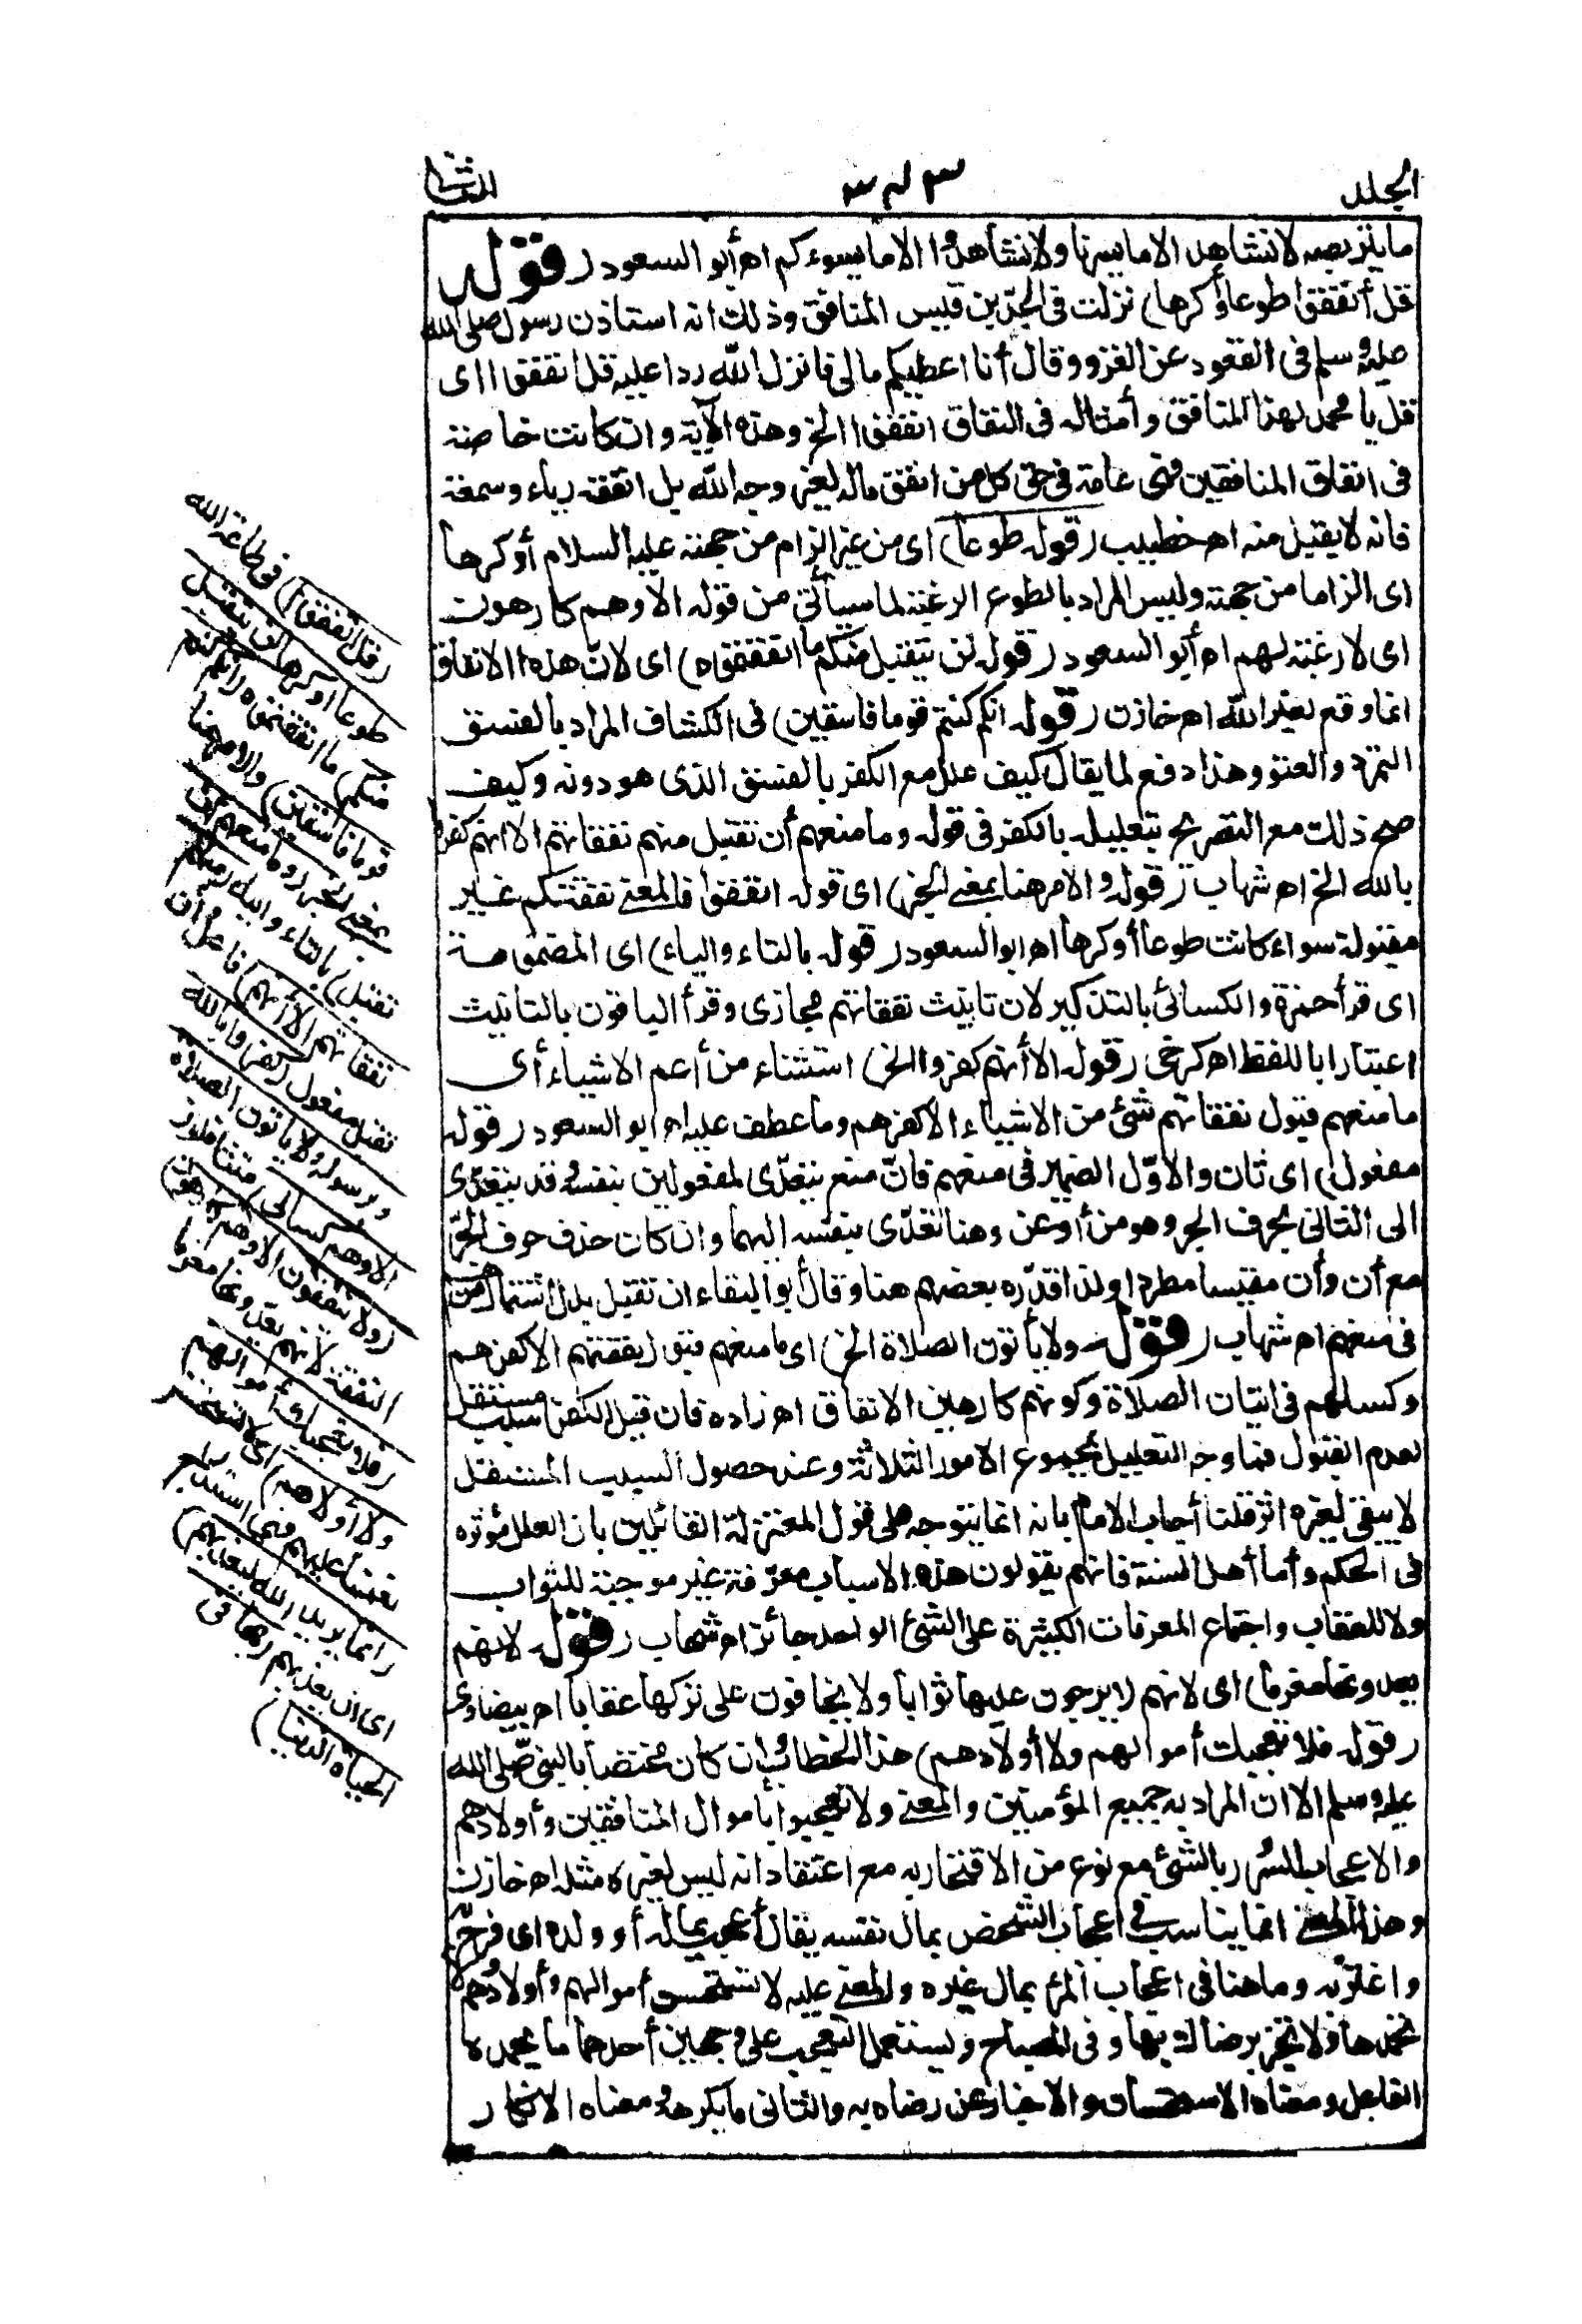 الجلد
٣٨٣
الثانى
ما يتربصه لا نشاهد الا ما يسرنا ولا نشاهد الا ما يسوءكم اه أبو السعود (قوله
قل أنفقوا طوعا أو كرها) نزلت فى الجد بن قيس المنافق وذلك انه استاذن رسول صلى الله
عليه وسلم فى القعود عن الغزو وقال أنا اعطيكم مالى فانزل الله ردا عليه قل انفقوا اى
قل يا محمد لهذا المنافق وأمثاله فى النفاق انفقوا الخ وهذه الآية وان كانت خاصة
فى انفاق المنافقين فهى عامة فى حق كل من انفق ماله لغير وجه الله بل انفقه رياء وسمعة
فانه لا يقبل منه اه خطيب (قوله طوعا) اى من غير الزام من جهته عليه السلام أو كرها
اى الزاما من جهته وليس المراد بالطوع الرغبة لما سيأتى من قوله الا وهم كارهون
اى لا رغبة لهم اه أبو السعود (قوله لن يتقبل منكم ما انفقتموه) اى لان هذا الانفاق
انما وقع لغير الله اه خازن (قوله انكم كنتم قوما فاسقين) فى الكشاف المراد بالفسق
التمرد والعتو وهذا دفع لما يقال كيف علل مع الكفر بالفسق الذى هو دونه وكيف
صح ذلك مع التصريح بتعليله بالكفر فى قوله وما منعهم أن تقبل منهم نفقاتهم الا انهم كفروا
بالله الخ اه شهاب (قوله والامر هنا بمعنى الخبر) اى قوله انفقوا فالمعنى نفقتكم غير
مقبولة سواء كانت طوعا أو كرها اه ابو السعود (قوله بالتاء والياء) اى المضمومة
اى قرأ حمزة والكسائى بالتذكير لان تانيث نفقاتهم مجازى وقرأ الباقون بالتانيث
اعتبارا باللفظ اه كرخى (قوله الا أنهم كفروا الخ) استثناء من أعم الاشياء أى
ما منعهم قبول نفقاتهم شئ من الاشياء الا كفرهم وما عطف عليه اه ابو السعود (قوله
مفعول) اى ثان والاول الضمير فى منعهم فان منع يتعدى لمفعولين بنفسه وقد يتعدى
الى الثانى بحرف الجر وهو من أو عن وهنا تعدى بنفسه اليهما وان كان حذف حرف الجر
مع أن وأن مقيسا مطردا ولذا قدره بعضهم هنا وقال أبو البقاء ان تقبل بدل اشتمال من هم
فى منعهم اه شهاب (قوله ولا يأتون الصلاة الخ) اى ما منعهم قبول نفقتهم الا كفرهم
وكسلهم فى اتيان الصلاة وكونهم كارهين الانفاق اه زاده فان قيل الكفر سبب مستقل
لعدم القبول فما وجه التعليل بمجموع الامور الثلاثة وعند حصول السبب المستقل
لا يبقى لغيره اثر قلنا أجاب الامام بانه انما يتوجه على قول المعتزلة القائلين بان العلل مؤثره
فى الحكم وأما أهل السنة فانهم يقولون هذه الاسباب معرفة غير موجبة للثواب
ولا للعقاب واجتماع المعرفات الكثيرة على الشئ الواحد جائز اه شهاب (قوله لانهم
يعدونها مغرما) اى لانهم لا يرجون عليها ثوابا ولا يخافون على تركها عقابا اه بيضاوى
(قوله فلا تعجبك أموالهم ولا أولادهم) هذا الخطاب وان كان مختصا بالنبى صلى الله
عليه وسلم الا ان المراد به جميع المؤمنين والمعنى ولا تعجبوا بأموال المنافقين وأولادهم
والاعجاب السرور بالشئ مع نوع من الافتخار به مع اعتقاد انه ليس لغيره مثله اه خازن
وهذا المعنى انما يناسب فى اعجاب الشخص بمال نفسه يقال أعجب بماله أو ولده اى فرح
واغتر به وما هنا فى اعجاب المرء بمال غيره والمعنى عليه لا تستحسن أموالهم وأولادهم ولا
تحمدها ولا تخبر برضاك بها وفى المصباح ويستعمل التعجب على وجهين أحدهما ما يحمده
الفاعل ومعناه الاستحسان والاخبار عن رضاه به والثانى ما يكرهه ومعناه الانكار
(قل أنفقوا) فى طاعة الله
طوعا أو كرها لن يتقبل
منكم) ما انفقتموه (انكم كنتم
قوما فاسقين) والامر هنا
بمعنى الخبر (وما منعهم أن
تقبل) بالتاء والياء (منهم
نفقاتهم الا أنهم) فاعل وأن
تقبل مفعول (كفروا بالله
وبرسوله ولا يأتون الصلاة
الا وهم كسالى) متثاقلون
(ولا ينفقون الا وهم كارهون)
النفقة لانهم يعدونها مغرما
(فلا تعجبك أموالهم
ولا أولادهم) اى لا تستحسن
نعمنا عليهم فهى استدراج
(انما يريد الله ليعذبهم)
اى ان يعذبهم (بها فى
الحياة الدنيا)